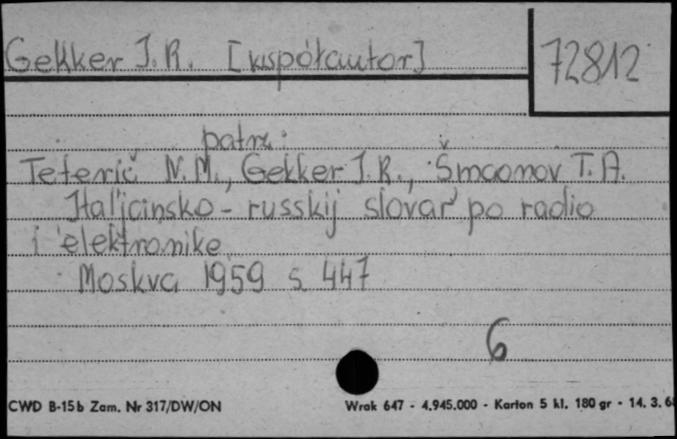 Gekker J. R. [współautor]
72812
patrz:
Teterič N. M., Gekker J. R., Šmaonov T. A.
Ital'jansko - russkij slovar' po radio
i elektronike
Moskva 1959 s 447
6
CWD B-15b Zam. Nr 317/DW/ON
Wrak 647 - 4.945.000 - Karton 5 kl. 180 gr - 14. 3. 6